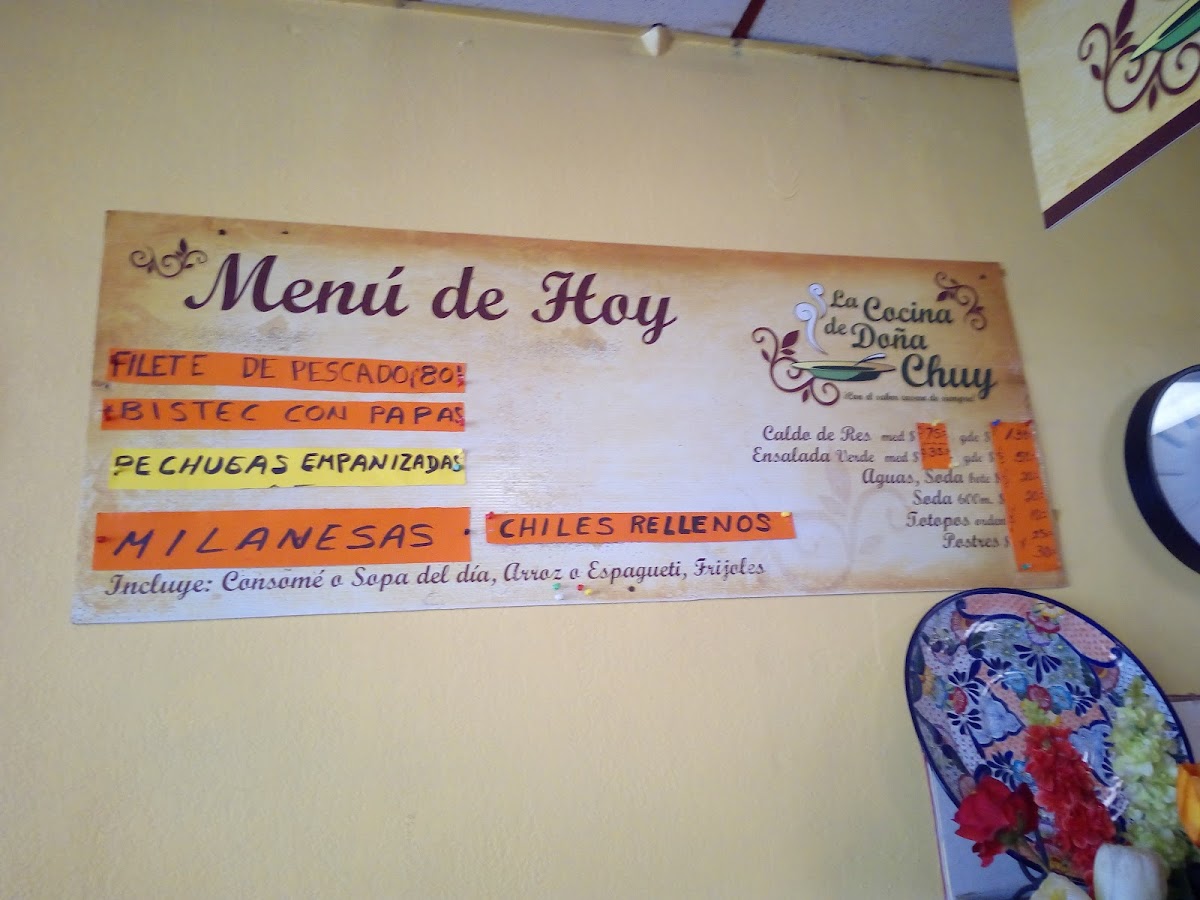 Menú de Hoy
FILETE DE PESCADO
BISTEC CON PAPAS
PECHUGAS EMPANIZADAS
MILANESAS
CHILES RELLENOS
Incluye: Consomé o Sopa del día, Arroz o Espagueti, Frijoles
La Cocina
de Doña
Chuy
Caldo de Res med $ 75 gde $
Ensalada Verde med $ 35 gde $
Aguas, Soda bote $
Soda 600m. $
Totopos orden $
Postres $ 30